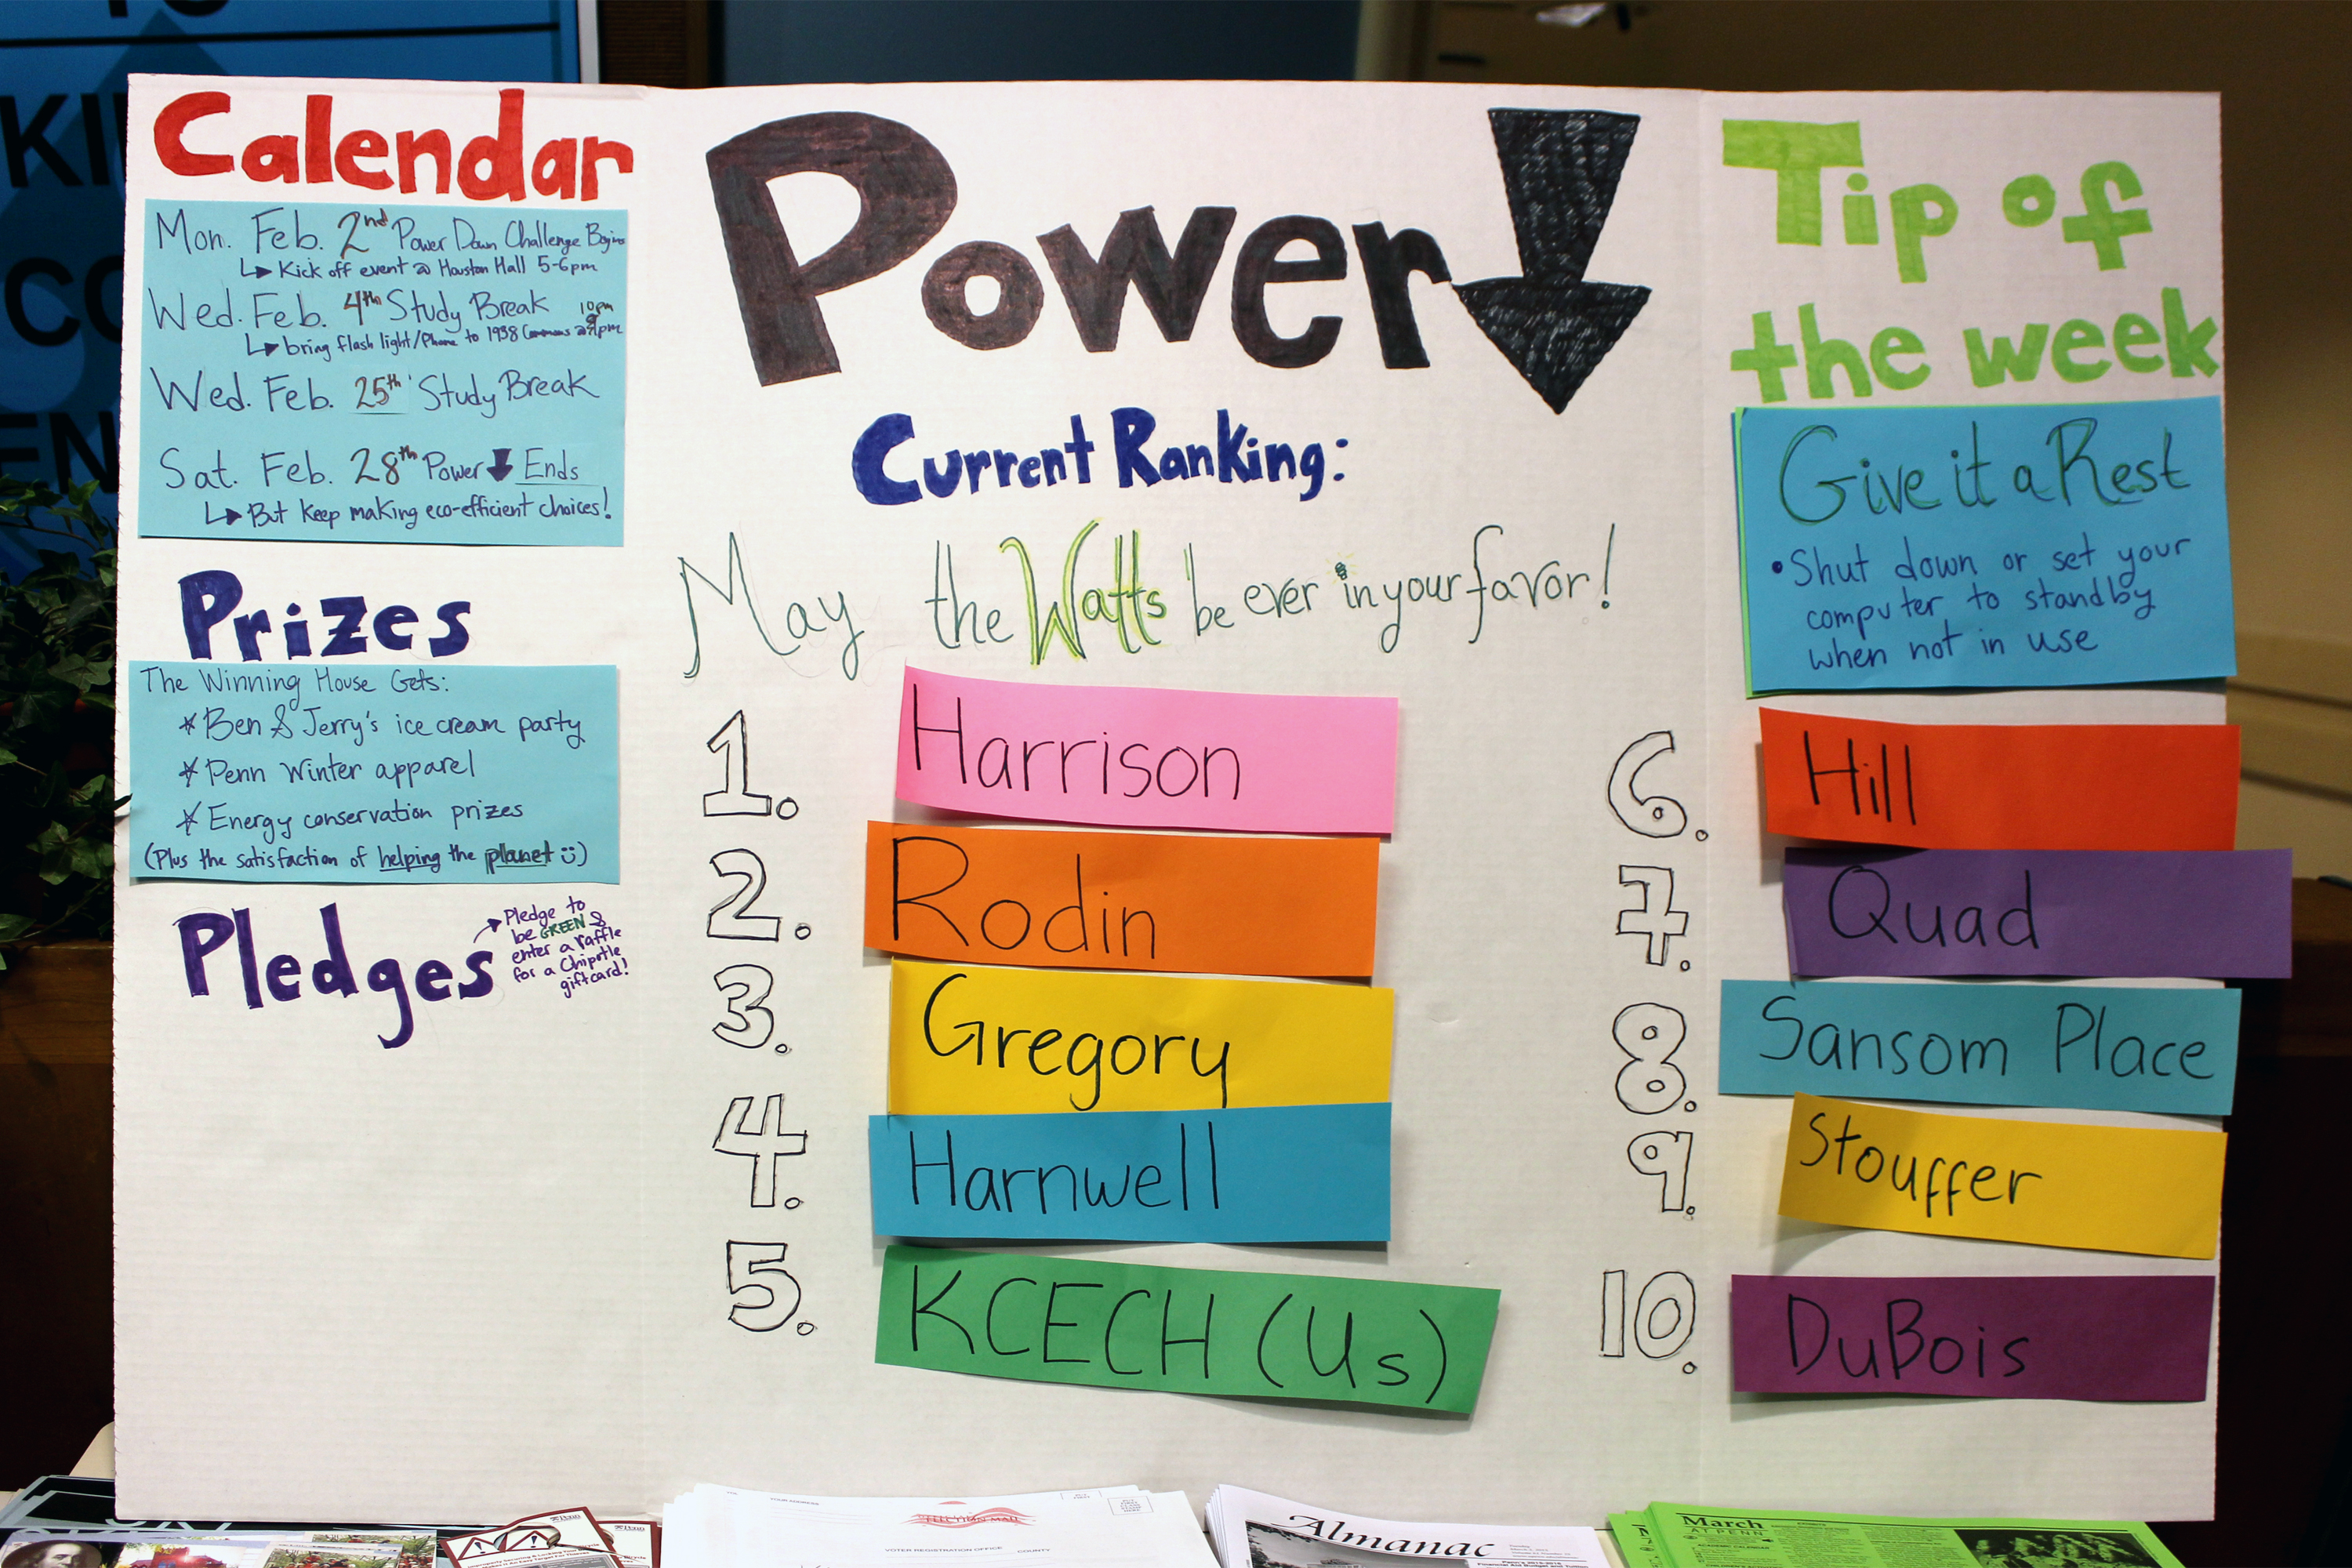 Calendar
Mon. Feb. 2nd Power Down Challenge Begins
↳ Kick off event @ Houston Hall 5-6pm
Wed. Feb. 4th Study Break 10pm
↳ bring flash light/Phone to 1938 Commons @
Wed. Feb. 25th Study Break
Sat. Feb. 28th Power ↓ Ends
↳ But keep making eco-efficient choices!
Prizes
The Winning House Gets:
* Ben & Jerry's ice cream party
* Penn Winter apparel
* Energy conservation prizes
(Plus the satisfaction of helping the planet ☺)
Pledges
→ Pledge to
be GREEN &
enter a raffle
for a Chipotle
giftcard!
Power ↓
Current Ranking:
May the Watts be ever in your favor!
1. Harrison
2. Rodin
3. Gregory
4. Harnwell
5. KCECH (Us)
Tip of
the week
Give it a Rest
• Shut down or set your
computer to standby
when not in use
6. Hill
7. Quad
8. Sansom Place
9. Stouffer
10. DuBois
YOUR ADDRESS
VOTER REGISTRATION OFFICE
COUNTY
Almanac
March
AT PENN